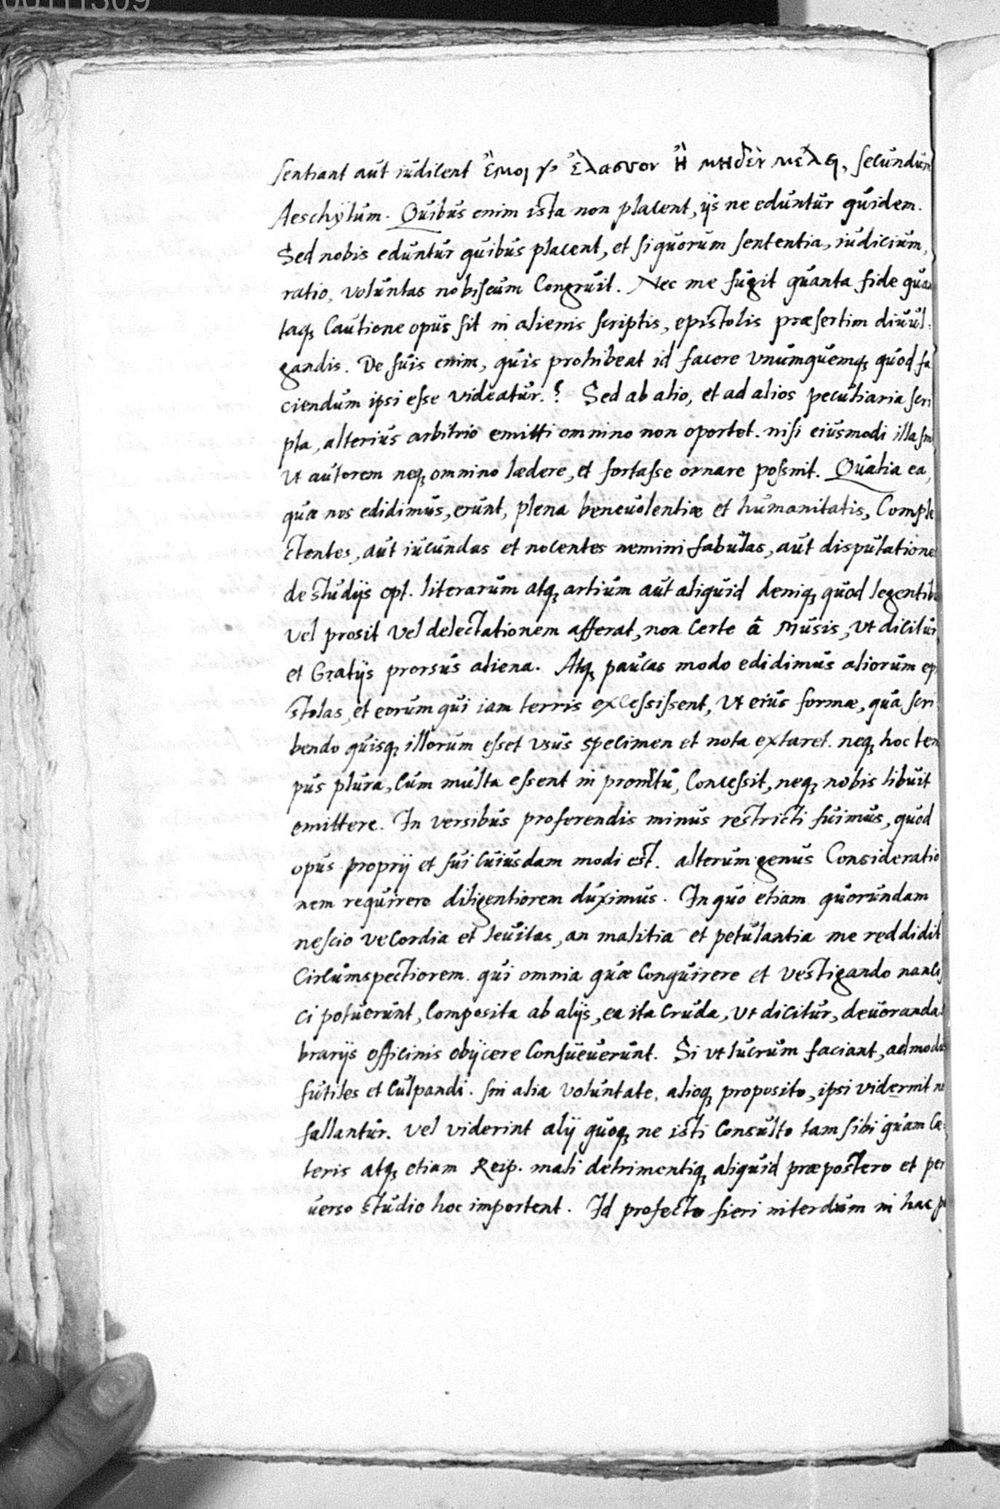 00111309
sentiant aut iudicent Ἐμοὶ γ' ἔλασσον ἢ μηδὲν μέλει, secundum
Aeschylum. Quibus enim ista non placent, ijs ne eduntur quidem.
Sed nobis eduntur quibus placent, et si quorum sententia, iudicium,
ratio, voluntas nobiscum Congruit. Nec me fugit quanta fide quan
taq; Cautione opus sit in alienis scriptis, epistolis præsertim diuul-
gandis. De suis enim, quis prohibeat id facere vnumquemq; quod fa
ciendum ipsi esse videatur.? Sed ab alio, et ad alios peculiaria scri
pta, alterius arbitrio emitti omnino non oportet. nisi eiusmodi illa sint
Vt autorem neq; omnino lædere, et fortasse ornare possint. Qualia ea,
quæ nos edidimus, erunt, plena beneuolentiæ et humanitatis, Comple
ctentes, aut iucundas et nocentes nemini fabulas, aut disputationes
de studijs opt. literarum atq; artium aut aliquid deniq; quod legentibus
vel prosit vel delectationem afferat, non certe â Musis, vt dicitur
et Gratijs prorsus aliena. Atq; paucas modo edidimus aliorum epi
stolas, et eorum qui iam terris excessissent, Vt eius formæ, qua scri
bendo quisq; illorum esset vsus specimen et nota extaret. neq; hoc tem
pus plura, Cum multa essent in promtu, Concessit, neq; nobis libuit
emittere. In versibus proferendis minus restricti fuimus, quod
opus proprij et sui Cuiusdam modi est. alterum genus Consideratio
nem requirere diligentiorem duximus. In quo etiam quorundam
nescio veCordia et leuitas, an malitia et petulantia me reddidit
Circumspectiorem. qui omnia quæ Conquirere et vestigando nancis
ci potuerunt, Composita ab alijs, ea ita Cruda, vt dicitur, deuoranda li
brarijs officinis obijcere Consueuerunt. Si vt lucrum faciant, admodum
futiles et Culpandi. sin alia voluntate, alioq; proposito, ipsi viderint ne
fallantur. vel viderint alij quoq; ne isti Consulto tam sibi quam Cæ-
teris atq; etiam Reip. mali detrimentiq; aliquid præpostero et per
uerso studio hoc importent. Id profecto fieri interdum in hac